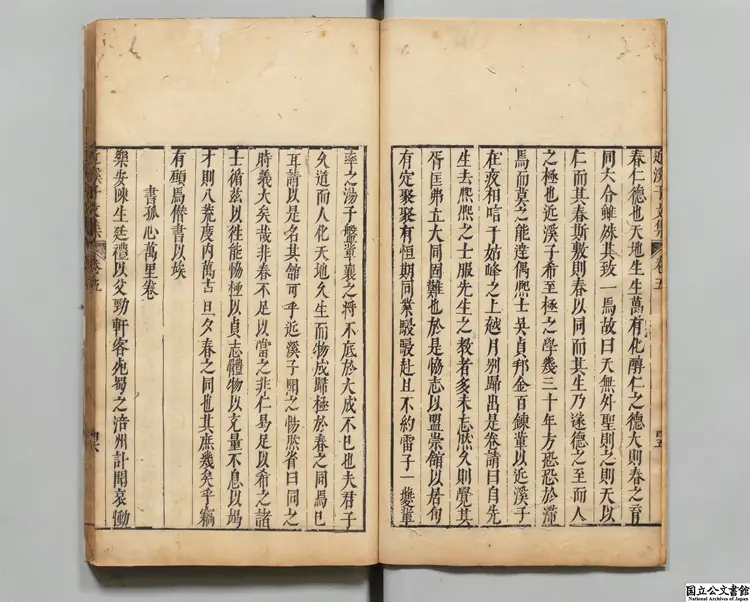 近溪子文集 卷五 四五
春仁德也天地生生萬有化醇仁之德大則春之育
同大合雖殊其致一焉故曰天無外聖則之則天以
仁而其春斯敷則春以同而其生乃遂德之至而人
之極也近溪子希至極之學幾三十年方恐恐於滯
焉而莫之能達偶熙士吳貞邦金百鍊輩以近溪子
在夜和唁于姑峰之上越月別歸出是卷請曰自先
生去熙熙之士服先生之教者多未忘然久則覺其
胥匡弗立大同固難也於是恊志以盟崇館以居旬
有定聚聚有恒期同業駸駸赴且不約雷子一夔輩
率之湯子盤輩襄之將不底於大成不已也夫君子
久道而人化天地久生而物成歸極於春之同焉已
耳請以是名其館可乎近溪子聞之惕然省曰同之
時義大矣哉非春不足以當之非仁曷足以希之諸
士循茲以徃能恊極以貞志體物以充量不息以竭
才則八荒度內萬古一旦夕春之同也其庶幾矣乎竊
有願焉僭書以埃
書孤心萬里卷
樂安陳生廷禮以父勁軒客死蜀之涪州訃聞哀慟
近溪子文集 卷五 四六
国立公文書館
National Archives of Japan